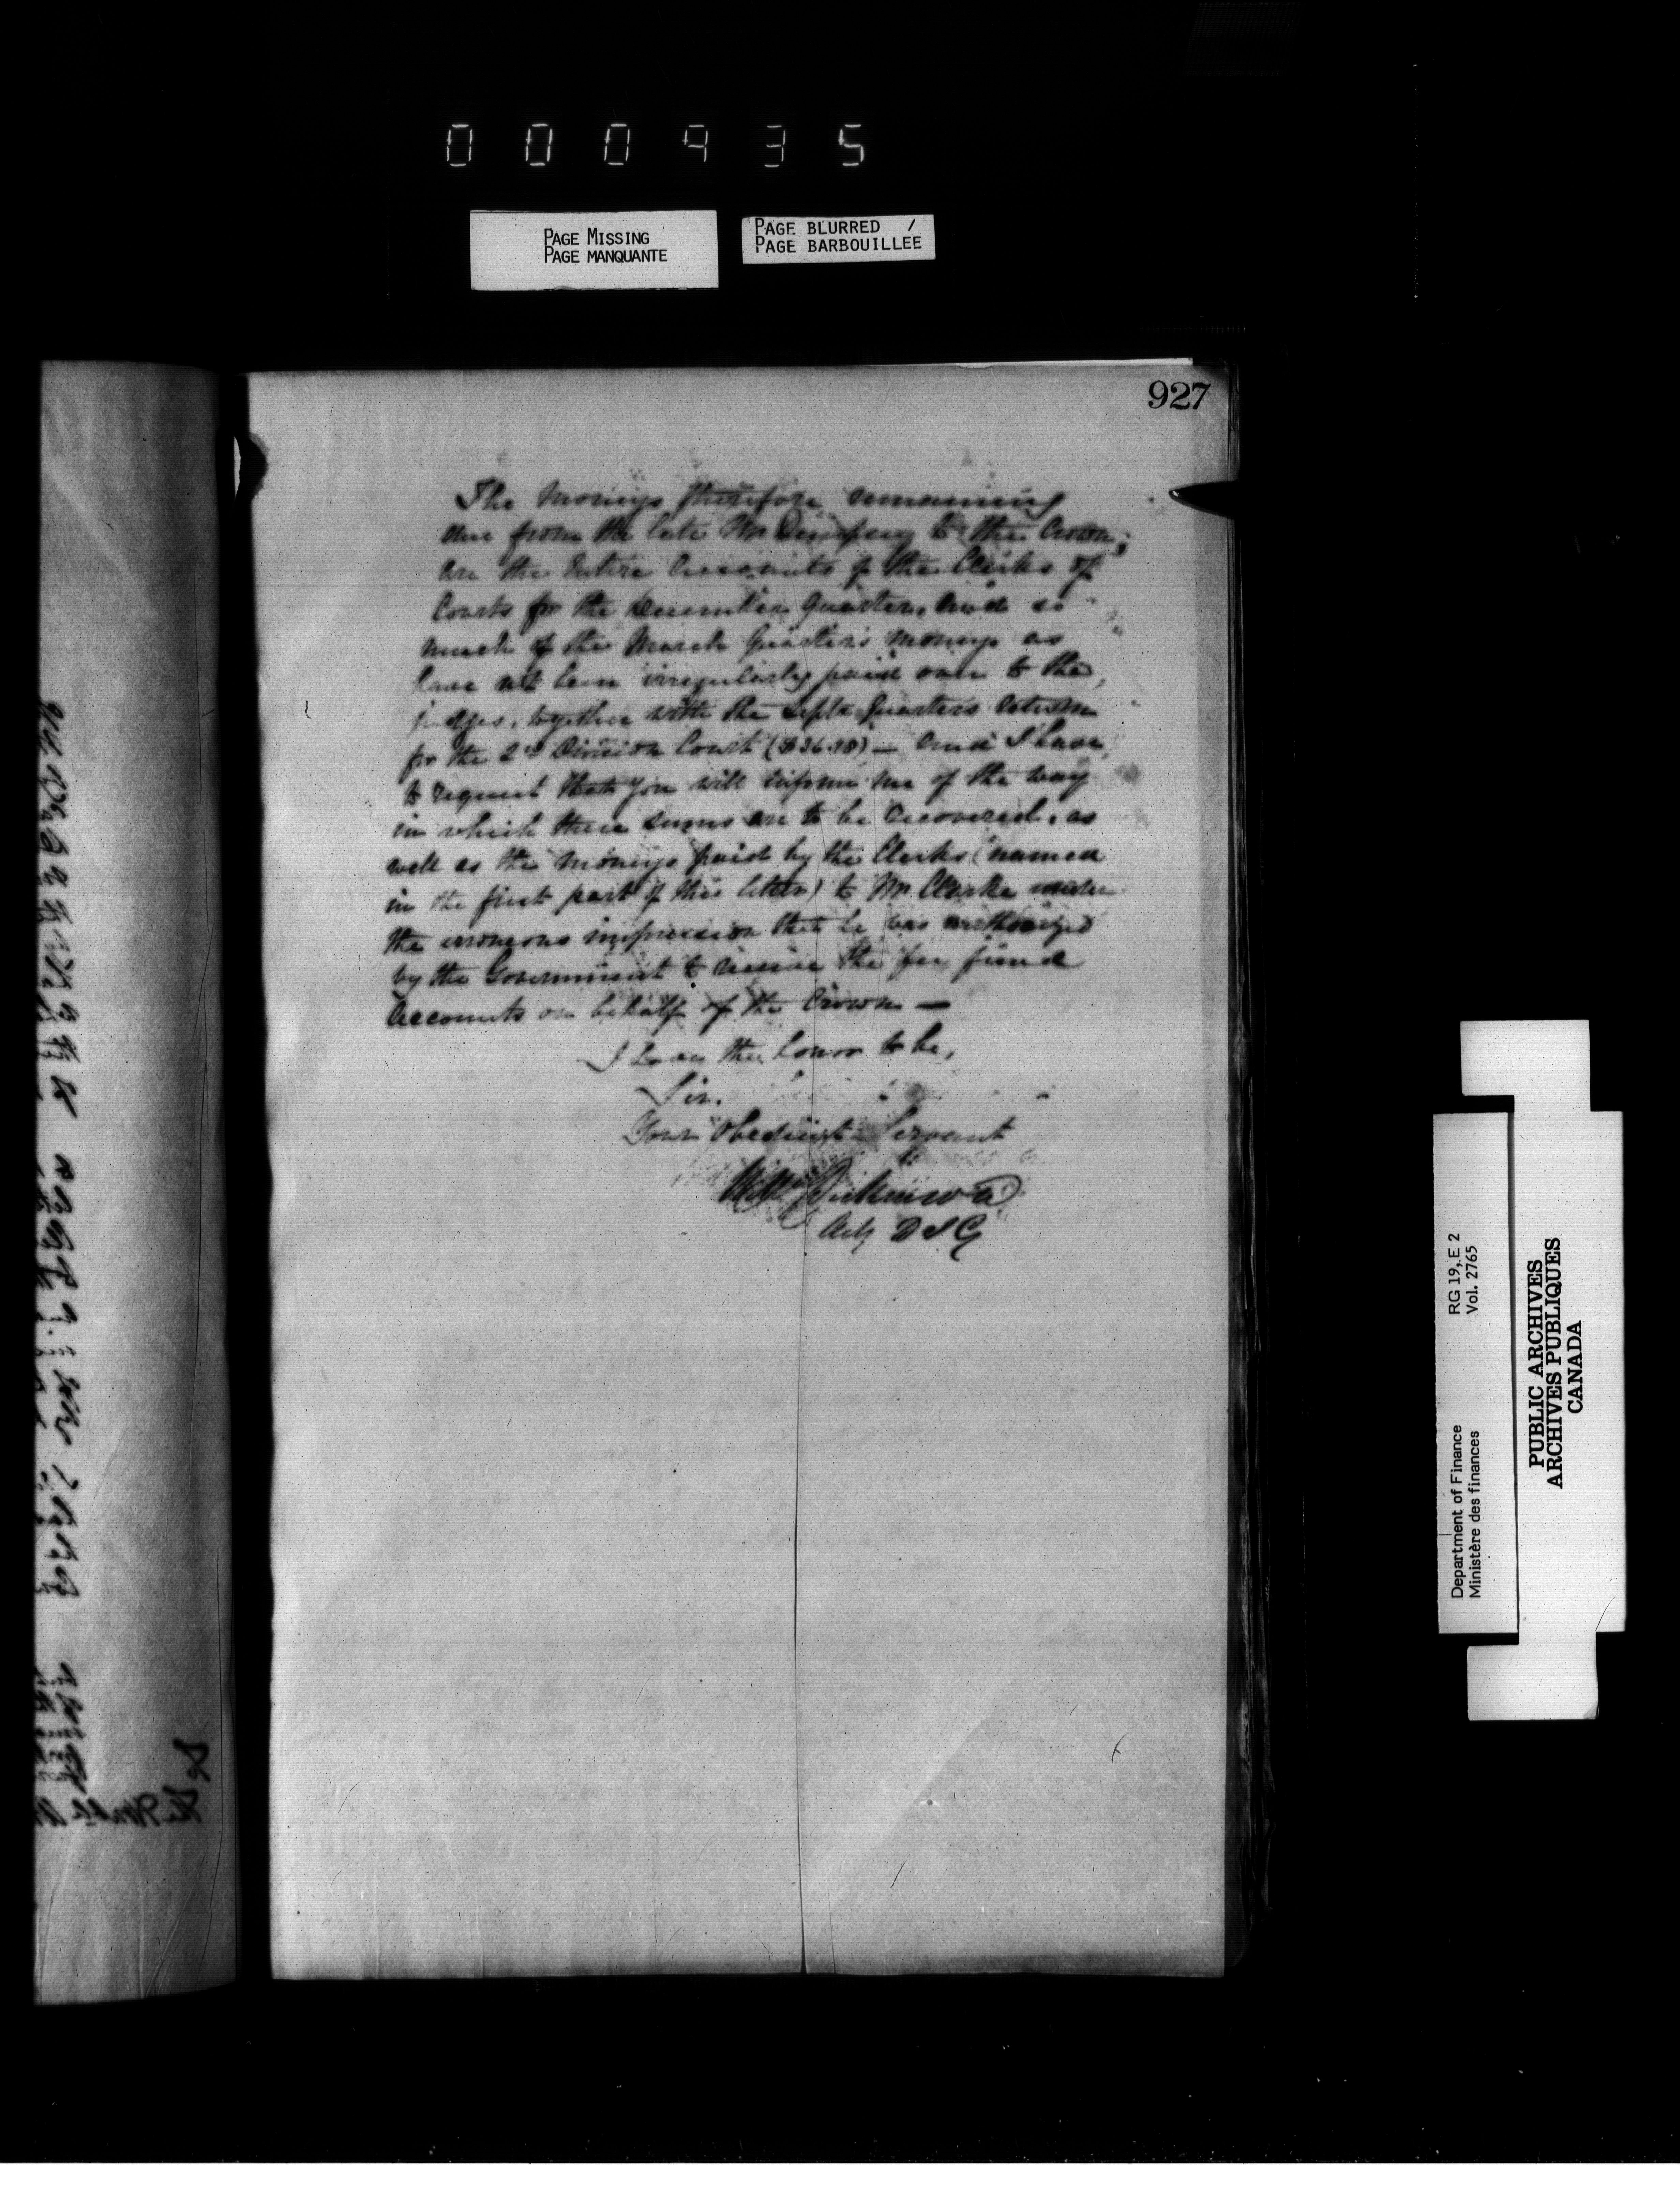 000935
PAGE MISSING
PAGE MANQUANTE
PAGE BLURRED /
PAGE BARBOUILLEE
927
The Moneys therefore remaining
due from the late Mr Dempsey to the Crown;
are the Entire Accounts of the Clerks of
Courts for the December Quarter, and so
much of the March Quarter's moneys as
have not been irregularly paid over to the
judges, together with the Septr Quarters return
for the 2nd Division Court ($36.98) — and I have
to request that you will inform me of the way
in which these sums are to be recovered, as
well as the Moneys paid by the Clerks (named
in the first part of this letter) to Mr Clarke under
the erroneous impression that he was authorized
by the Government to receive the fee fund
Accounts on behalf of the Crown —
I have the honor to be,
Sir.
Your Obedient Servant
Wm Dickinson
Actg D I G
Department of Finance RG 19, E 2
Ministère des finances Vol. 2765
PUBLIC ARCHIVES
ARCHIVES PUBLIQUES
CANADA